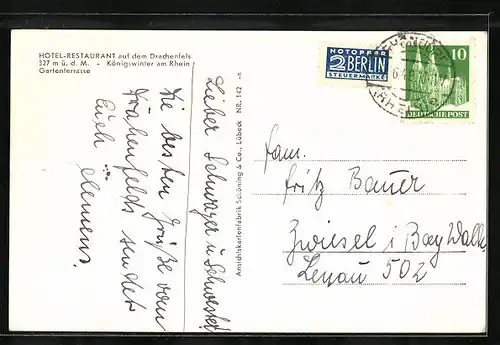 HOTEL-RESTAURANT auf dem Drachenfels
327 m ü. d. M. - Königswinter am Rhein
Gartenterrasse
Lieber Schwager u Schwester
Die besten Grüße vom
Drachenfels sendet
Euch
Clemens.
Ansichtskartenfabrik Schöning & Co., Lübeck NR. 142
NOTOPFER
2 BERLIN
STEUERMARKE
10
DEUTSCHE POST
Fam.
Fritz Bauer
Zwiesel i Bay Wald
502